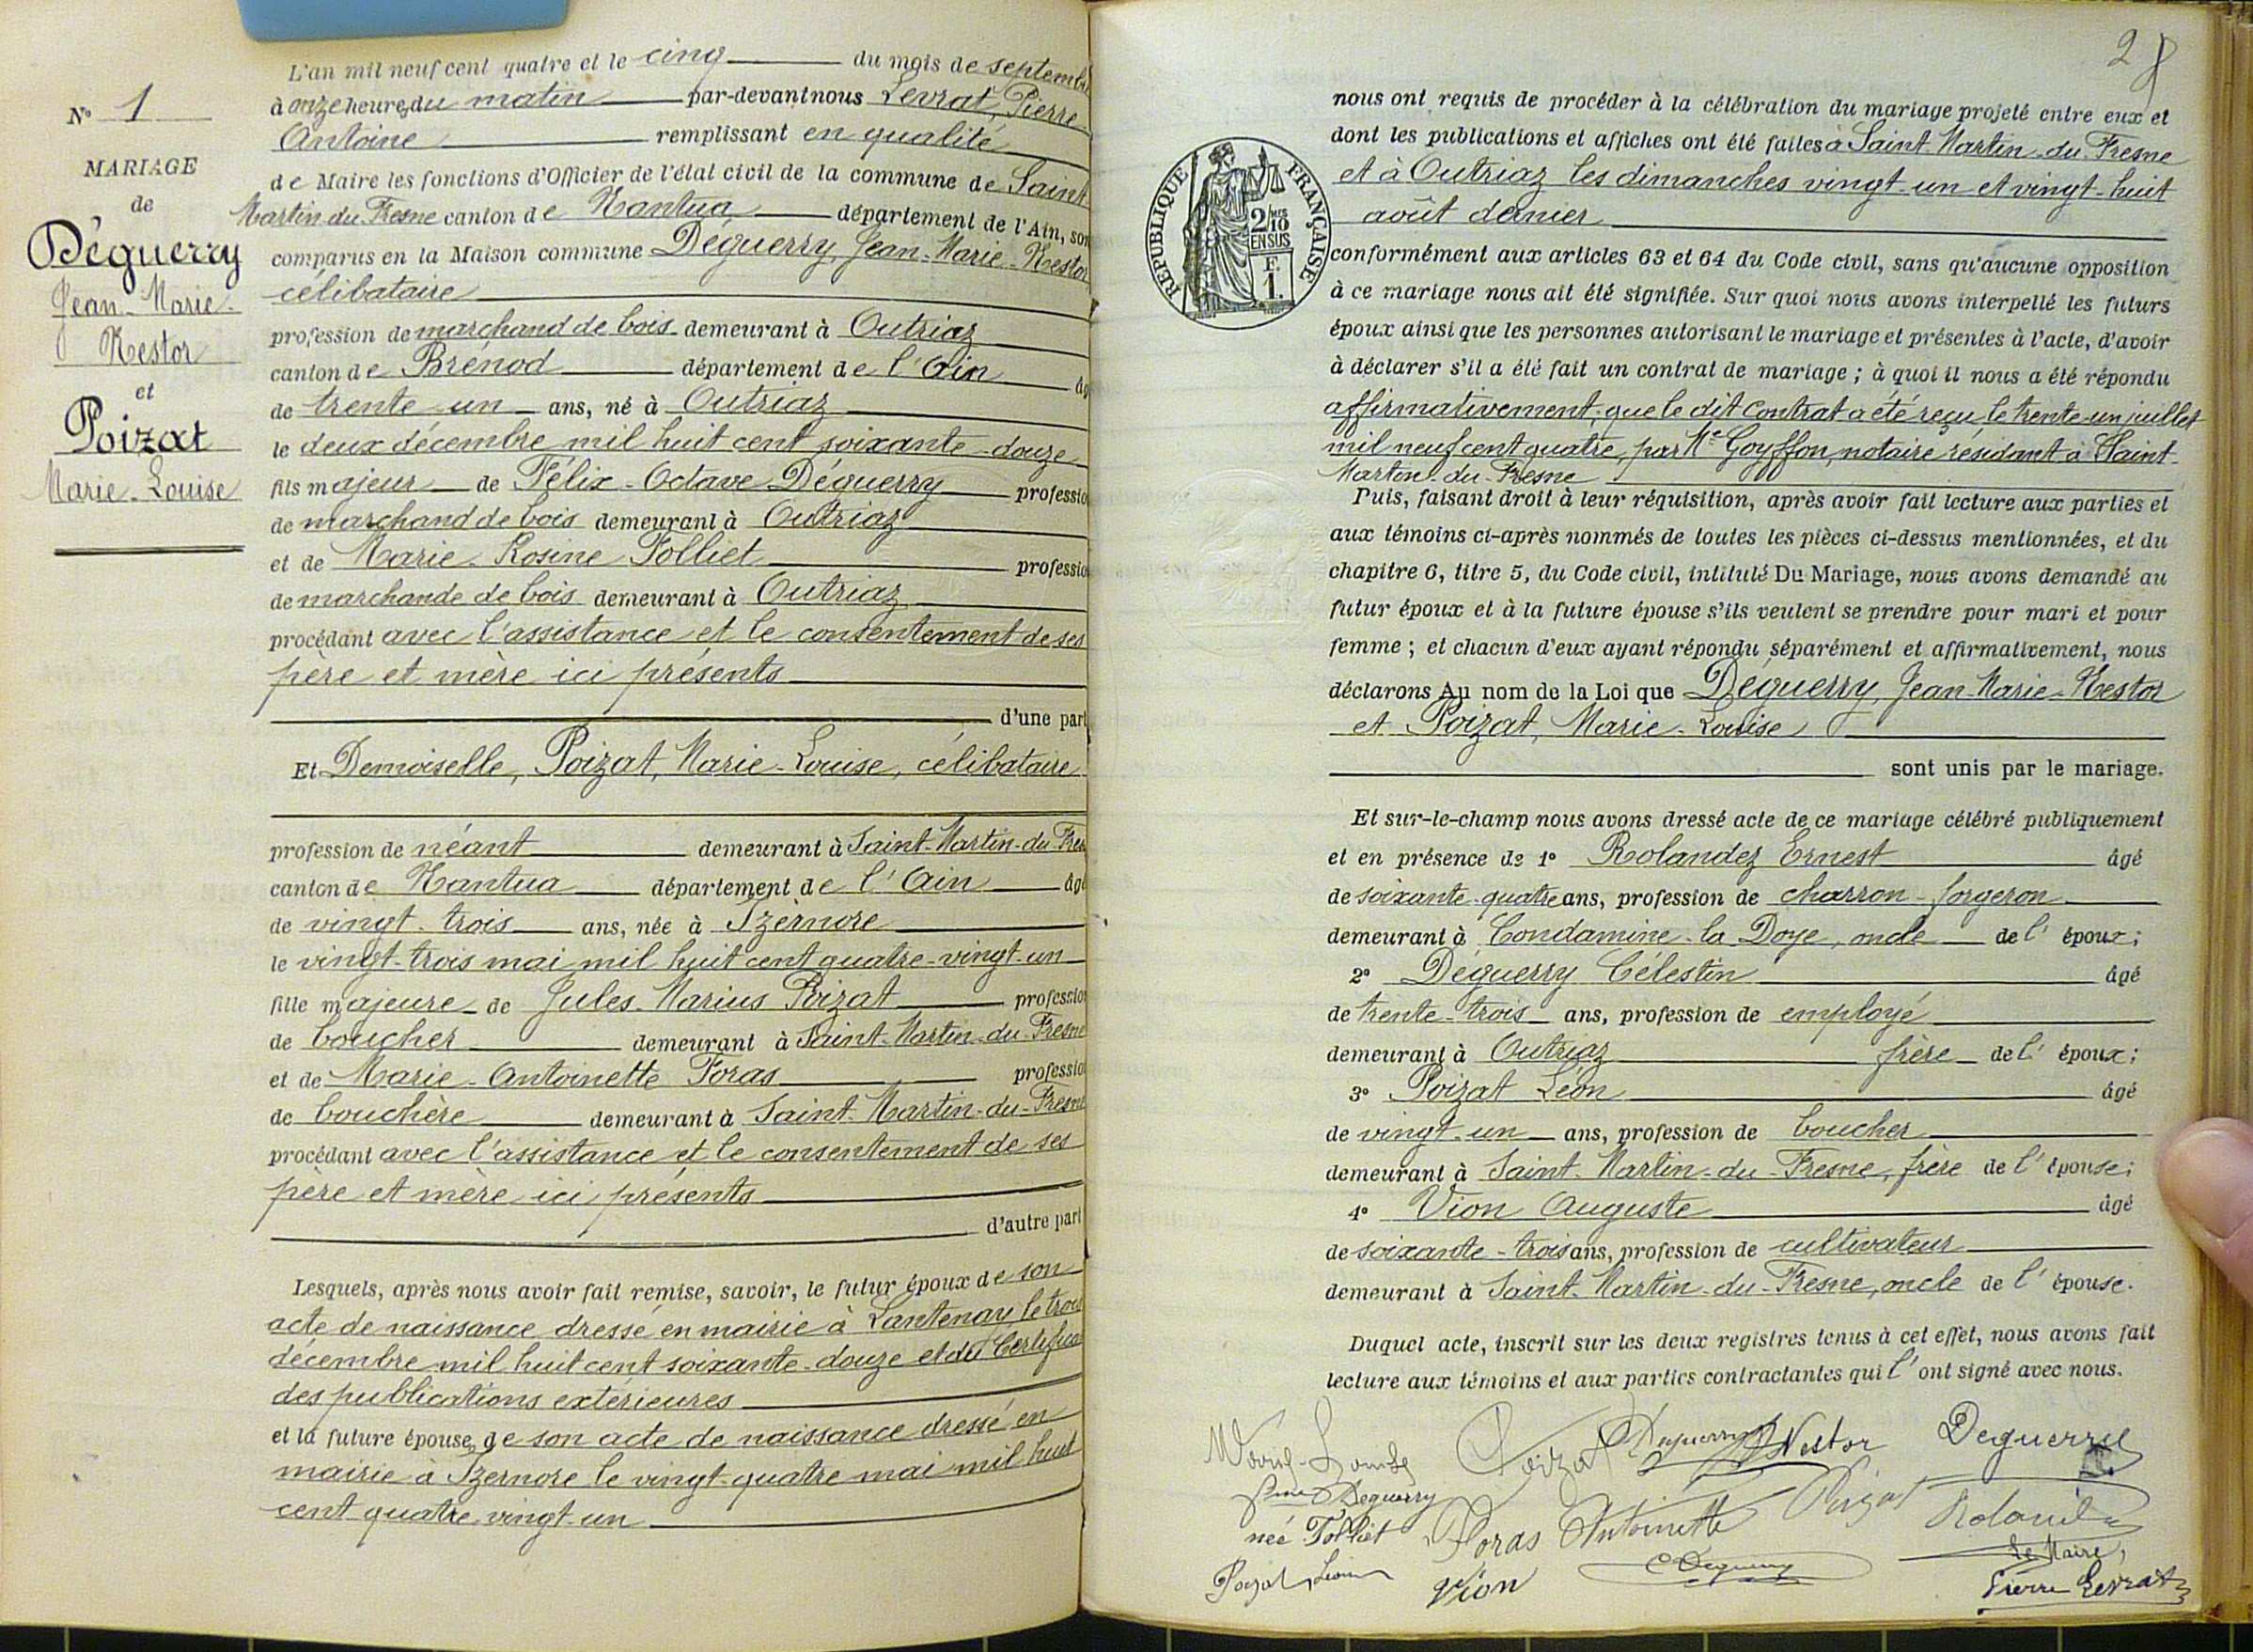 N° 1
MARIAGE
de
Déguerry
Jean-Marie-
Nestor
et
Poizat
Marie-Louise
L'an mil neuf cent quatre et le cinq du mois de septembre
à onze heures du matin par-devant nous Levrat, Pierre
Antoine remplissant en qualité
de Maire les fonctions d'Officier de l'état civil de la commune de Saint
Martin du Fresne canton de Nantua département de l'Ain, son
comparus en la Maison commune Déguerry, Jean-Marie-Nestor
célibataire
profession de marchand de bois demeurant à Outriaz
canton de Brénod département de l'Ain âg
de trente-un ans, né à Outriaz
le deux décembre mil huit cent soixante-douze
fils majeur de Félix-Octave Déguerry professio
de marchand de bois demeurant à Outriaz
et de Marie-Rosine Folliet professio
de marchande de bois demeurant à Outriaz
procédant avec l'assistance et le consentement de ses
père et mère ici présents
d'une part
Et Demoiselle, Poizat, Marie-Louise, célibataire
profession de néant demeurant à Saint-Martin-du-Fres
canton de Nantua département de l'Ain âgé
de vingt-trois ans, née à Izernore
le vingt-trois mai mil huit cent quatre-vingt-un
fille majeure de Jules-Marius Poizat profession
de boucher demeurant à Saint-Martin-du-Fresne
et de Marie-Antoinette Foras professio
de bouchère demeurant à Saint-Martin-du-Fresne
procédant avec l'assistance et le consentement de ses
père et mère ici présents
d'autre part
Lesquels, après nous avoir fait remise, savoir, le futur époux de son
acte de naissance dressé en mairie à Lantenay, le trois
décembre mil huit cent soixante-douze et du Certificat
des publications extérieures
et la future épouse, de son acte de naissance dressé en
mairie à Izernore le vingt-quatre mai mil huit
cent quatre-vingt-un
2
nous ont requis de procéder à la célébration du mariage projeté entre eux et
dont les publications et affiches ont été faites à Saint-Martin-du-Fresne
et à Outriaz les dimanches vingt-un et vingt-huit
août dernier
RÉPUBLIQUE FRANÇAISE
2/10
EN SUS
F.
1.
conformément aux articles 63 et 64 du Code civil, sans qu'aucune opposition
à ce mariage nous ait été signifiée. Sur quoi nous avons interpellé les futurs
époux ainsi que les personnes autorisant le mariage et présentes à l'acte, d'avoir
à déclarer s'il a été fait un contrat de mariage ; à quoi il nous a été répondu
affirmativement, que le dit contrat a été reçu le trente-un juillet
mil neuf cent quatre, par Me Goyffon, notaire résidant à Saint-
Martin-du-Fresne
Puis, faisant droit à leur réquisition, après avoir fait lecture aux parties et
aux témoins ci-après nommés de toutes les pièces ci-dessus mentionnées, et du
chapitre 6, titre 5, du Code civil, intitulé Du Mariage, nous avons demandé au
futur époux et à la future épouse s'ils veulent se prendre pour mari et pour
femme ; et chacun d'eux ayant répondu séparément et affirmativement, nous
déclarons Au nom de la Loi que Déguerry, Jean-Marie-Nestor
et Poizat, Marie-Louise
sont unis par le mariage.
Et sur-le-champ nous avons dressé acte de ce mariage célébré publiquement
et en présence de 1° Rolandez Ernest âgé
de soixante-quatre ans, profession de charron-forgeron
demeurant à Condamine-la-Doye, oncle de l'époux ;
2° Déguerry Célestin âgé
de trente-trois ans, profession de employé
demeurant à Outriaz frère de l'époux ;
3° Poizat Léon âgé
de vingt-un ans, profession de boucher
demeurant à Saint-Martin-du-Fresne, frère de l'épouse ;
4° Vion Auguste âgé
de soixante-trois ans, profession de cultivateur
demeurant à Saint-Martin-du-Fresne, oncle de l'épouse.
Duquel acte, inscrit sur les deux registres tenus à cet effet, nous avons fait
lecture aux témoins et aux parties contractantes qui l'ont signé avec nous.
Marie-Louise Poizat Deguerry Nestor Deguerry
Deguerry
née Folliet Foras Antoinette Poizat
Poizat Léon Vion C Deguerry Le Maire,
Pierre Levrat